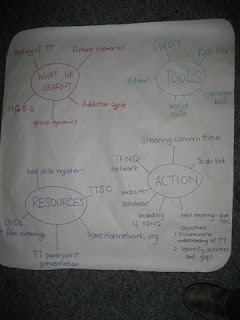 History of TT
Future scenarios
WHAT WE
LEARNT
Addiction cycle
group dynamics
SWOT
TOOLS
world
cafe
Steering committee
To do list
TFNQ
network
ACTION
website
database
branding
of TFNQ
next meeting - date
TBC
Objectives:
1. Disseminate
understanding of TT
2. Identify activities
and gaps
local skills register
TTSC
RESOURCES
DVDs
film screenings
Transitionnetwork.org
TT powerpoint
presentation